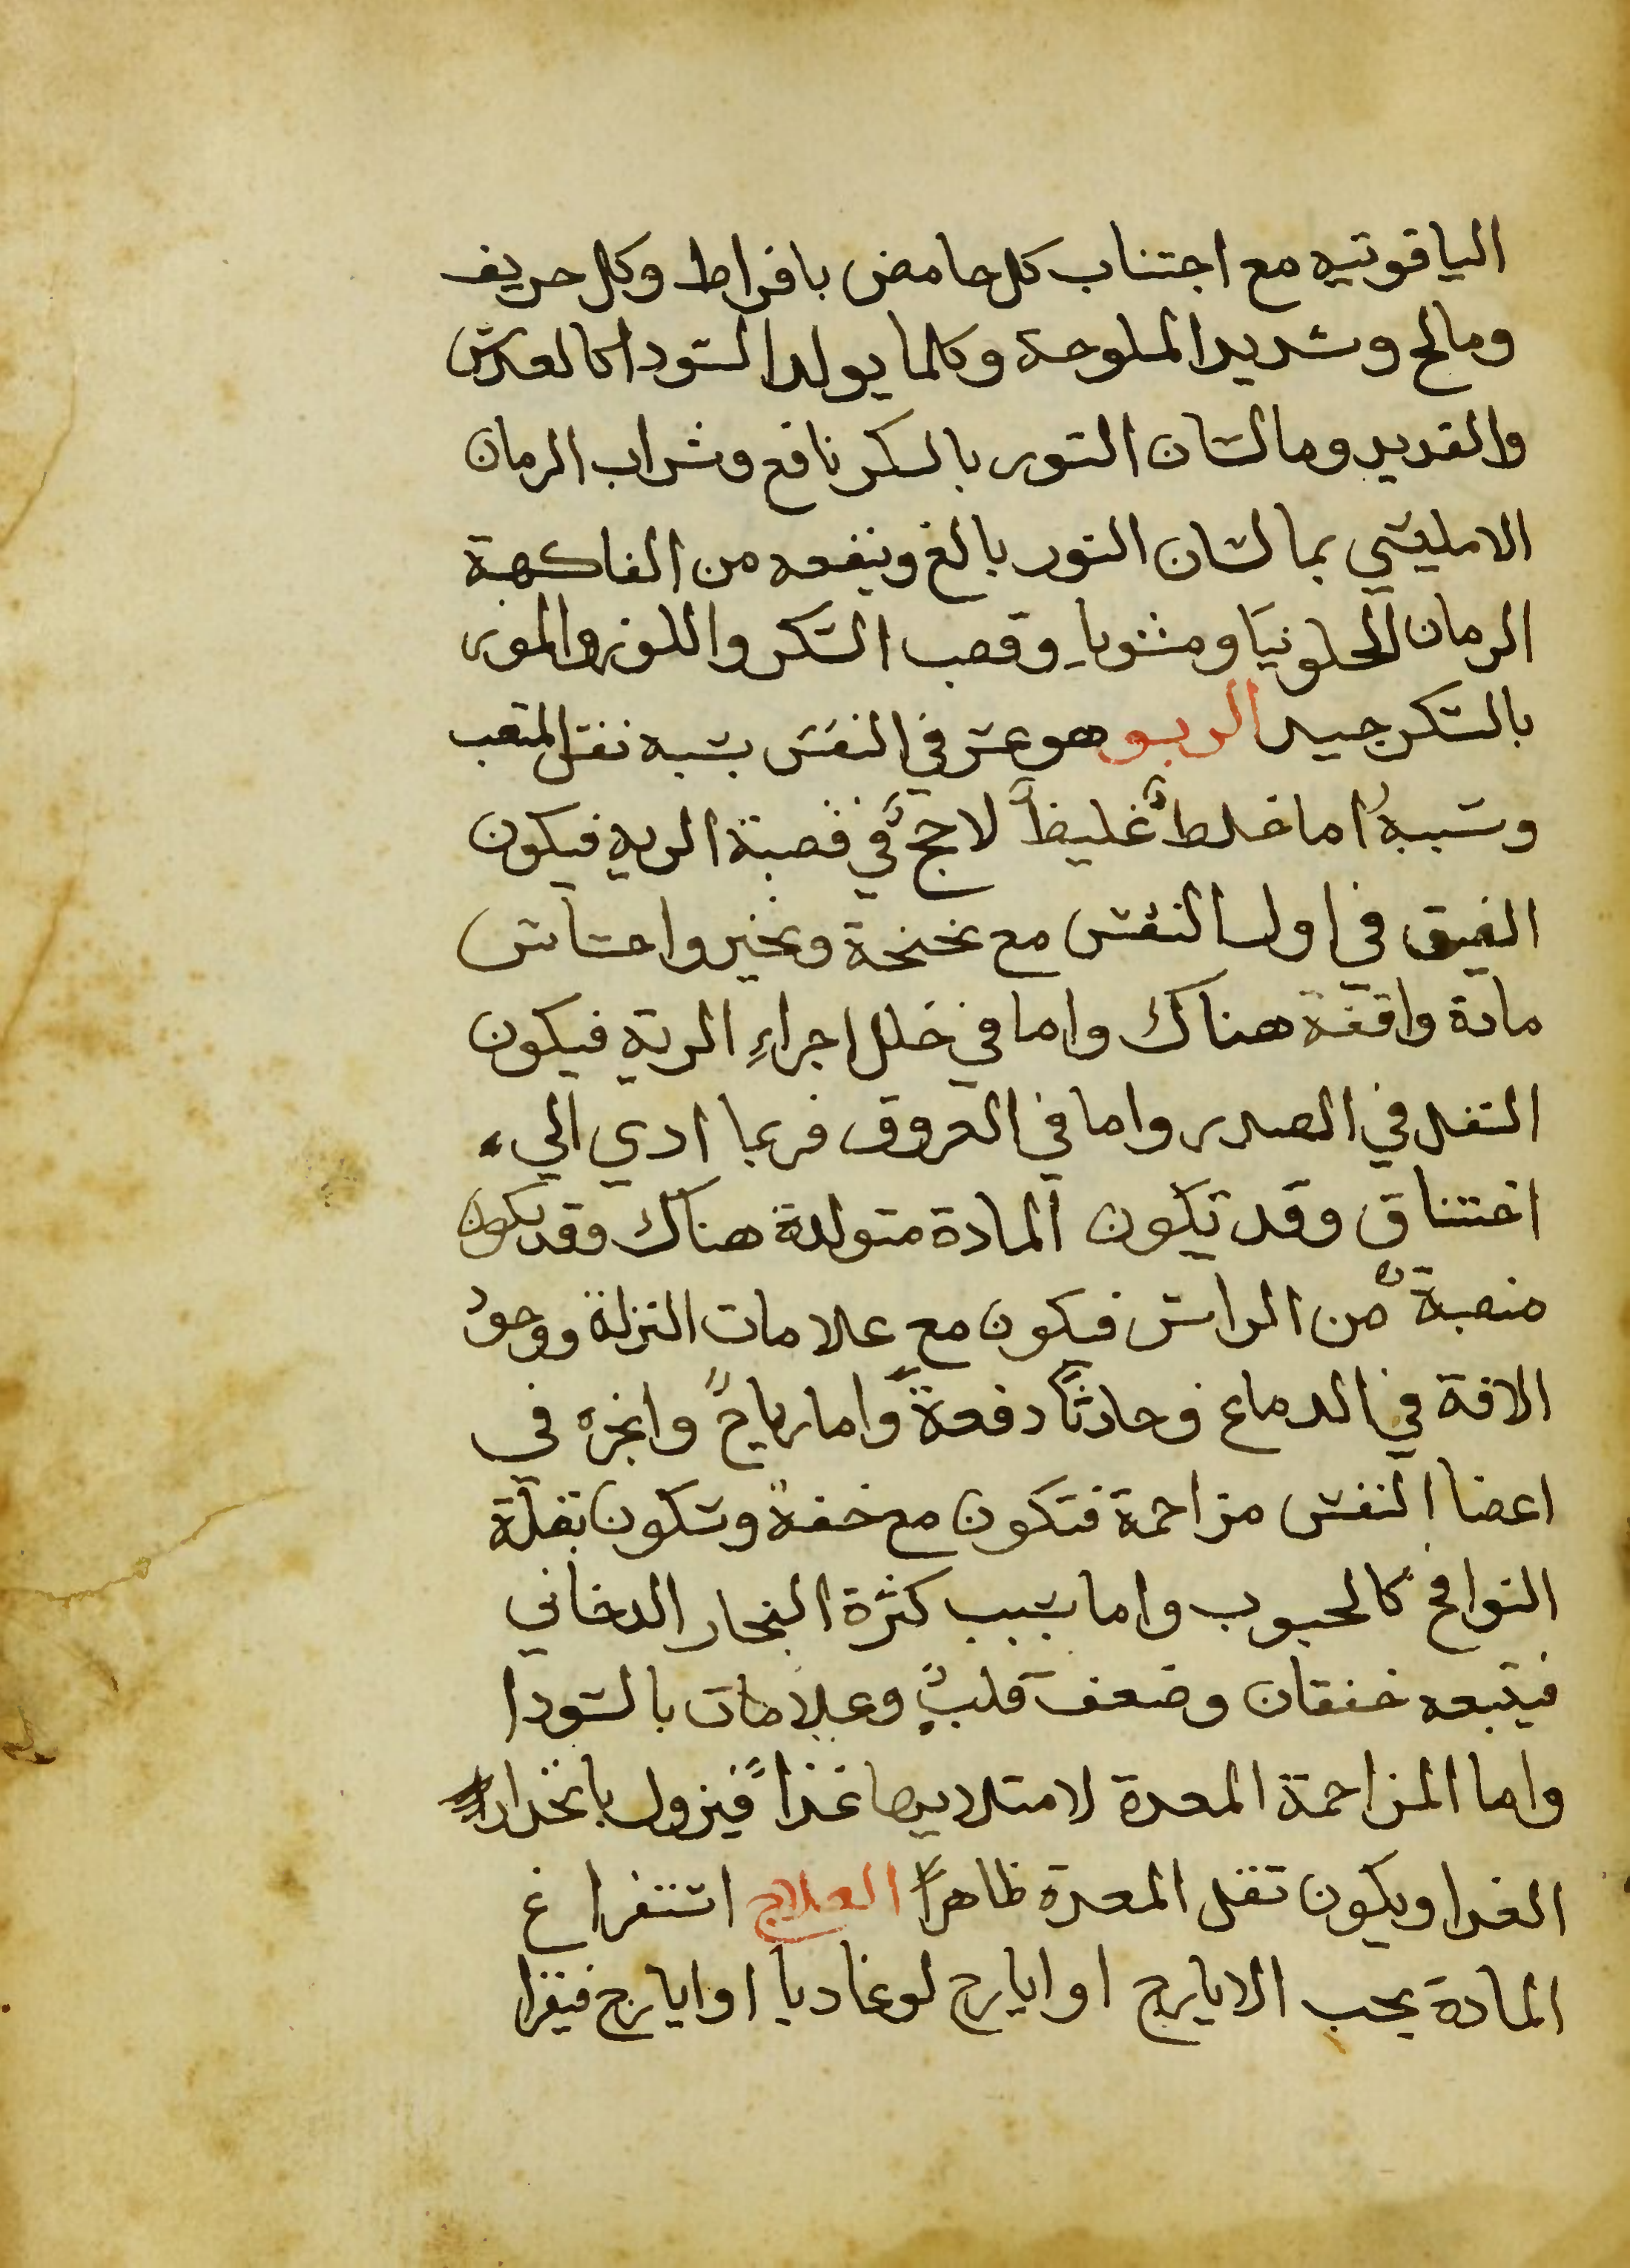 الياقوتيه مع اجتناب كل حامض بافراط وكل حريف
ومالح وشديد الملوحة وكلما يولد السودا كالعدس
والقديد وما لسان الثور بالسكر نافع وشراب الرمان
الامليسي بما لسان الثور بالغ وينفعه من الفاكهة
الرمان الحلو نيا ومشويا وقصب السكر واللوز والموز
بالسكر جيد الربو هو عسر في النفس يشبه نفس المتعب
وسببه اما خلط غليظ لاحج في قصبة الريه فيكون
الضيق في اول النفس مع نحنحة ونخير واحساس
مادة واقفة هناك واما في خلل اجزاء الرية فيكون
الثقل في الصدر واما في العروق فربما ادي الي
اختناق وقد تكون المادة متولدة هناك وقد يكون
منصبة من الراس فيكون مع علامات النزلة ووجود
الافة في الدماغ وحادثا دفعة واما رياح وابخره في
اعضا النفس مزاحمة فتكون مع خفة وتكون بقلة
النوافخ كالحبوب واما بسبب كثرة البخار الدخاني
فيتبعه خفقان وضعف قلب وعلامات بالسودا
واما المزاحمة المعدة لامتلايها غذا فيزول بانحدار
الغدا ويكون ثقل المعدة ظاهرا العلاج استفراغ
المادة بحب الايارج او ايارج لوغاديا او ايارج فيقرا